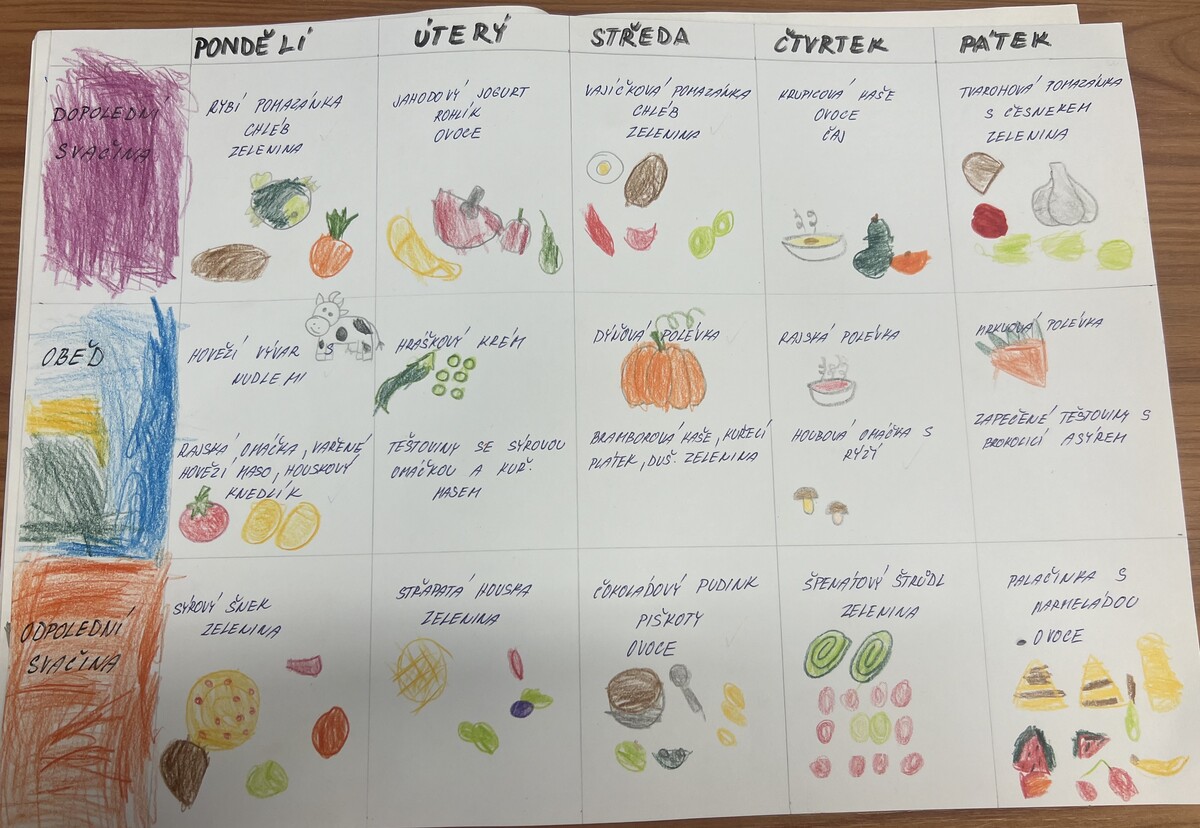 PONDĚLÍ
ÚTERÝ
STŘEDA
ČTVRTEK
PÁTEK
DOPOLEDNÍ
SVAČINA
RYBÍ POMAZÁNKA
CHLÉB
ZELENINA
JAHODOVÝ JOGURT
ROHLÍK
OVOCE
VAJÍČKOVÁ POMAZÁNKA
CHLÉB
ZELENINA
KRUPICOVÁ KAŠE
OVOCE
ČAJ
TVAROHOVÁ POMAZÁNKA
S ČESNEKEM
ZELENINA
OBĚD
HOVĚZÍ VÝVAR S
NUDLEMI
HRÁŠKOVÝ KRÉM
DÝŇOVÁ POLÉVKA
RAJSKÁ POLÉVKA
MRKVOVÁ POLÉVKA
RAJSKÁ OMÁČKA, VAŘENÉ
HOVĚZÍ MASO, HOUSKOVÝ
KNEDLÍK
TĚSTOVINY SE SÝROVOU
OMÁČKOU A KUŘ.
MASEM
BRAMBOROVÁ KAŠE, KUŘECÍ
PLÁTEK, DUŠ. ZELENINA
HOUBOVÁ OMÁČKA S
RÝŽÍ
ZAPEČENÉ TĚSTOVINY S
BROKOLICÍ A SÝREM
ODPOLEDNÍ
SVAČINA
SÝROVÝ ŠNEK
ZELENINA
STRAPATÁ HOUSKA
ZELENINA
ČOKOLÁDOVÝ PUDINK
PIŠKOTY
OVOCE
ŠPENÁTOVÝ ŠTRŮDL
ZELENINA
PALAČINKA S
MARMELÁDOU
OVOCE